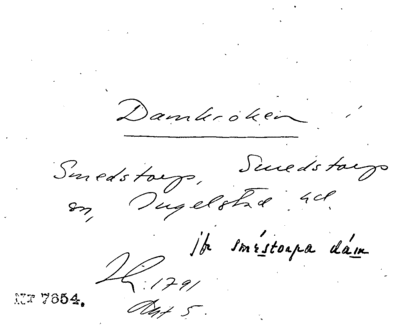 Damkroken
Smedstorp, Smedstorps
sn, Ingelstad hd.
jfr sméstorpa dám
1791
Akt 5.
Nr 7654.